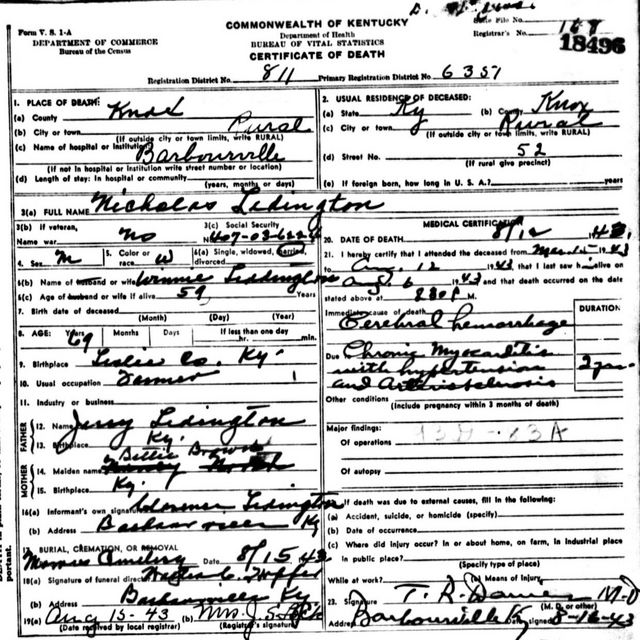 Form V. S. 1-A
DEPARTMENT OF COMMERCE
Bureau of the Census
COMMONWEALTH OF KENTUCKY
Department of Health
BUREAU OF VITAL STATISTICS
CERTIFICATE OF DEATH
State File No.
Registrar's No. 168
18496
Registration District No. 811 Primary Registration District No. 6357
1. PLACE OF DEATH:
(a) County Knox
(b) City or town Rural
(If outside city or town limits, write RURAL)
(c) Name of hospital or institution Barbourville
(If not in hospital or institution write street number or location)
(d) Length of stay: In hospital or community
(years, months or days)
2. USUAL RESIDENCE OF DECEASED:
(a) State Ky (b) County Knox
(c) City or town Rural
(If outside city or town limits, write RURAL)
(d) Street No. 52
(If rural give precinct)
(e) If foreign born, how long in U. S. A.? years
3(a) FULL NAME Nicholas Ledington
3(b) If veteran,
Name war no
3(c) Social Security
4. Sex M
5. Color or race W
6(a) Single, widowed, married, divorced
6(b) Name of husband or wife Winnie Leddington
6(c) Age of husband or wife if alive 59 Years
7. Birth date of deceased
(Month) (Day) (Year)
8. AGE: Years 69 Months Days If less than one day
hr. min.
9. Birthplace Leslie Co. Ky.
10. Usual occupation Farmer
11. Industry or business
FATHER
12. Name Jerry Ledington
13. Birthplace Ky.
MOTHER
14. Maiden name Billie
15. Birthplace Ky.
16(a) Informant's own signature Ledington
(b) Address Barbourville Ky
17. BURIAL, CREMATION, OR REMOVAL
Cemetery Date 8/15 43
18(a) Signature of funeral director
(b) Address Barbourville Ky
19(a) Aug 15-43 (b) Mrs. J. S.
(Date received by local registrar) (Registrar's signature)
MEDICAL CERTIFICATION
20. DATE OF DEATH 8/12 43
21. I hereby certify that I attended the deceased from
to Aug. 12 1943 that I last saw him alive on
Aug. 6 1943 and that death occurred on the date
stated above at M.
Immediate cause of death
Cerebral hemorrhage
DURATION
Due Chronic Myocarditis
with hypertension
and Arteriosclerosis
2 yrs.
Other conditions
(Include pregnancy within 3 months of death)
Major findings:
Of operations
Of autopsy
If death was due to external causes, fill in the following:
(a) Accident, suicide, or homicide (specify)
(b) Date of occurrence
(c) Where did injury occur? In or about home, on farm, in industrial place
in public place?
(Specify type of place)
While at work? (e) Means of injury
23. Signature T. R. Davies M-D
(M. D. or other)
Address Barbourville Ky Date signed 8-16-43